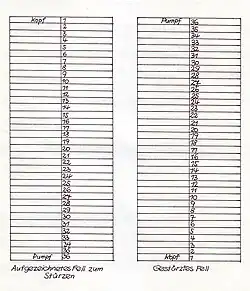 Kopf 1
2
3
4
5
6
7
8
9
10
11
12
13
14
15
16
17
18
19
20
21
22
23
24
25
26
27
28
29
30
31
32
33
34
35
Rumpf 36
Aufgezeichnetes Fell zum
Stürzen
Rumpf 36
35
34
33
32
31
30
29
28
27
26
25
24
23
22
21
20
19
18
17
16
15
14
13
12
11
10
9
8
7
6
5
4
3
2
Kopf 1
Gestürztes Fell